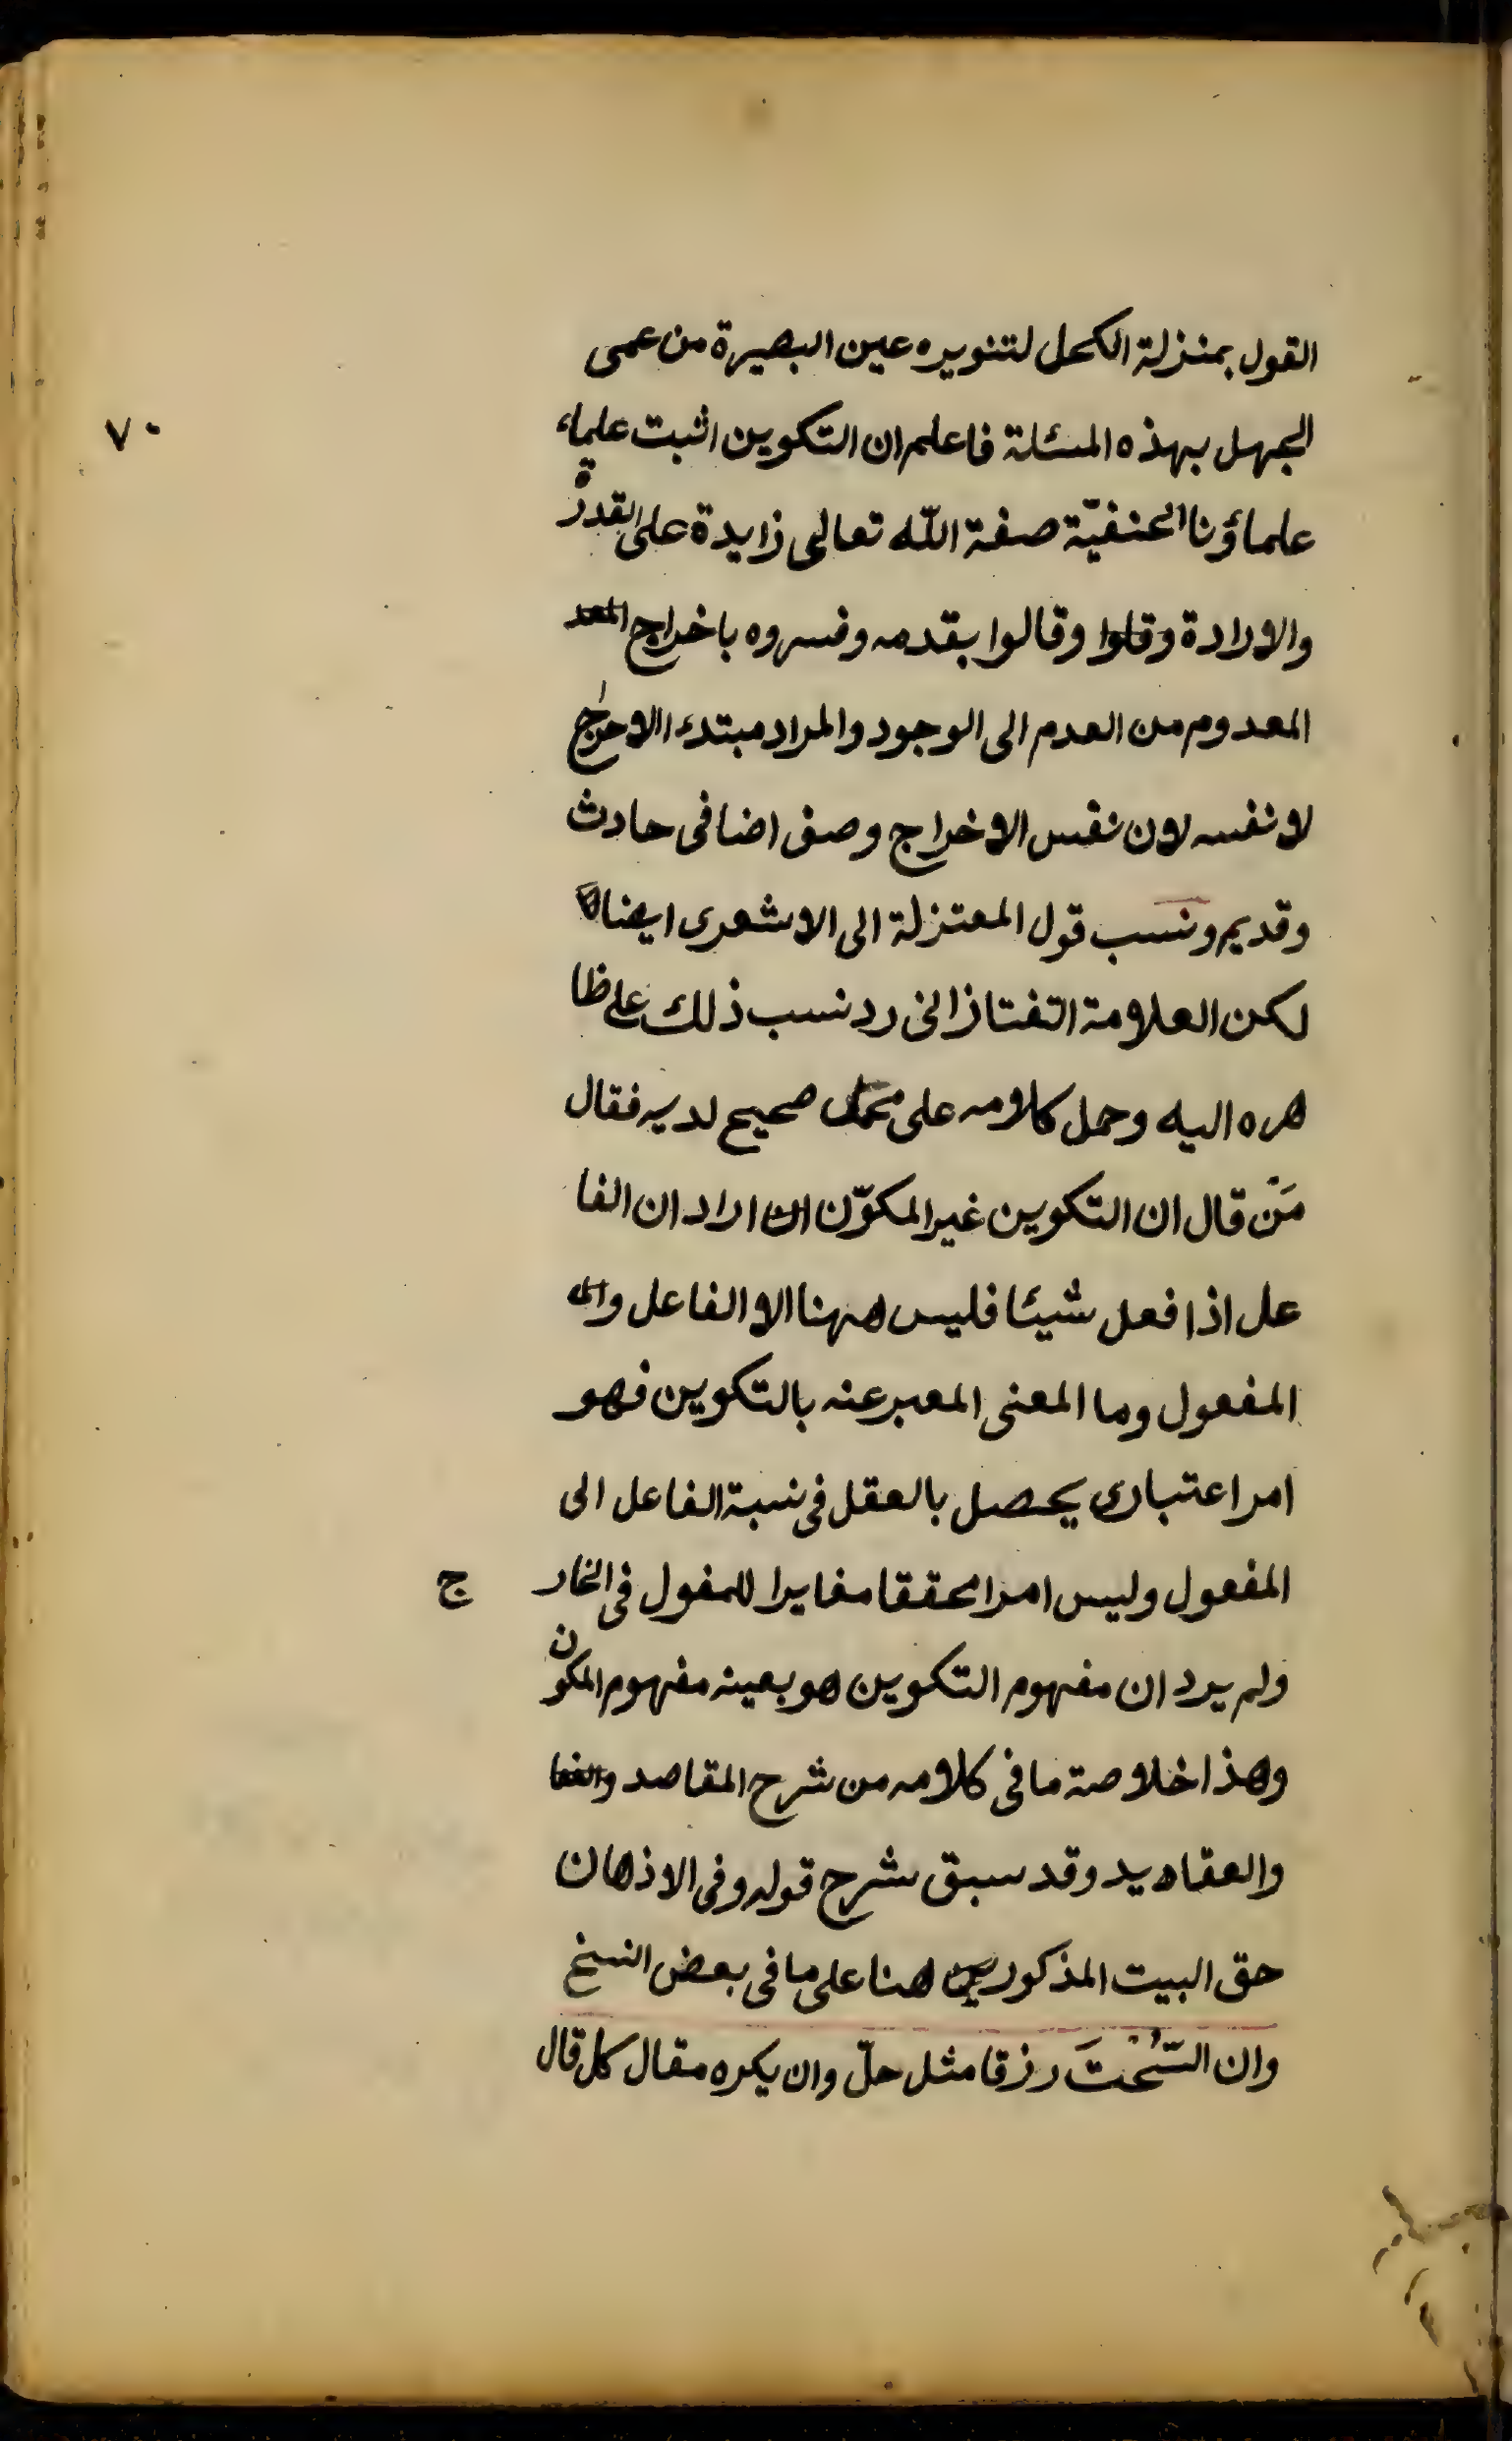 القول بمنزلة الكحل لتنويره عين البصيرة من عمى
الجهل بهذه المسئلة فاعلم ان التكوين اثبت علماء
٧٠
علماؤنا الحنفيّة صفة اللّه تعالى زايدة على القدرة
والارادة وقلوا وقالوا بقدمه وفسروه باخراج المعد
المعدوم من العدم الى الوجود والمراد مبتدء الاخراج
لا نفسه لان نفس الاخراج وصف اضافى حادث
وقديم ونسب قول المعتزلة الى الاشعرى ايضا
لكن العلامة التفتازانى رد نسب ذلك على ظا
هره اليه وحمل كلامه على محمل صحيح لديه فقال
مَنْ قال ان التكوين غير المكوّن ان اراد ان الفا
عل اذا فعل شيئا فليس ههنا الا الفاعل وال
المفعول وما المعنى المعبر عنه بالتكوين فهو
امر اعتبارى يحصل بالعقل فى نسبة الفاعل الى
المفعول وليس امرا محققا مغايرا للمفول فى الخار ج
ولم يرد ان مفهوم التكوين هو بعينه مفهوم المكون
وهذا خلاصة ما فى كلامه من شرح المقاصد والعقا
والعقاهيد وقد سبق شرح قوله وفى الاذهان
حق البيت المذكورين هنا على ما فى بعض النسخ
وان السُّحْتَ رزقا مثل حلّ وان يكره مقال كل قال